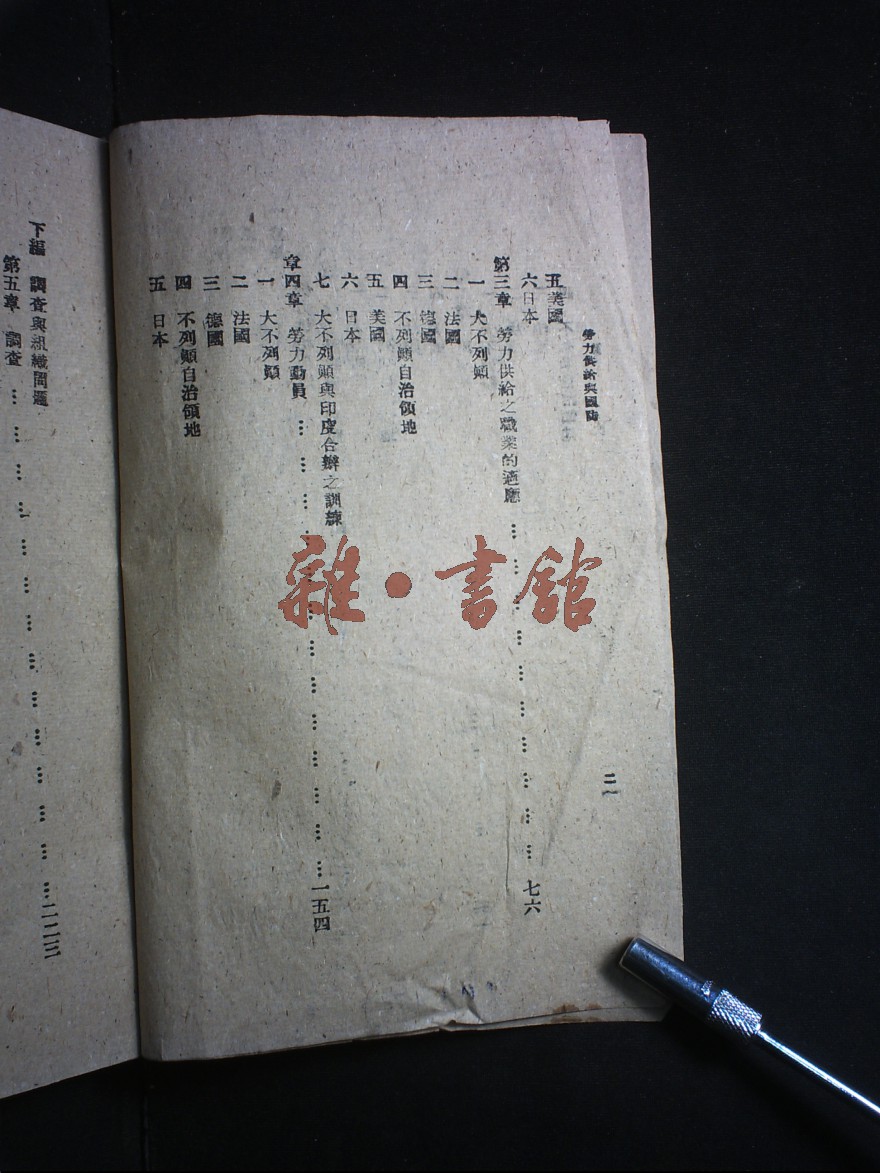 勞力供給與國防
二
五 美國
六 日本
第三章 勞力供給之職業的適應 … … … … … … … … … … 七六
一 大不列顛
二 法國
三 德國
四 不列顛自治領地
五 美國
六 日本
七 大不列顛與印度合辦之訓練
章四章 勞力動員 … … … … … … … … … … … … 一五四
一 大不列顛
二 法國
三 德國
四 不列顛自治領地
五 日本
下編 調查與組織問題
第五章 調查 … … … … … … … … … … … … … …
雜·書館